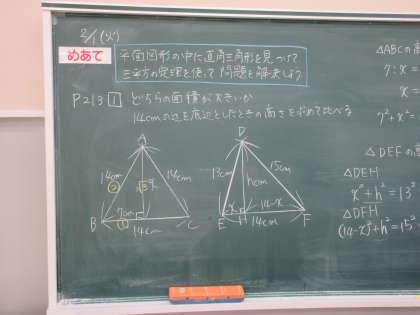 2/1(火)
めあて
平面図形の中に直角三角形を見つけて
三平方の定理を使って問題を解決しよう
P213 1 どちらの面積が大きいか
14cmの辺を底辺としたときの高さを求めて比べる
A
14cm
②
③
x
14cm
7cm
B
C
①
14cm
D
13cm
hcm
15cm
x
14-x
E
H
F
14cm
△ABCの高
7:x=
x=
7²+x²=
△DEFの高
△DEH
x²+h²=13²
△DFH
(14-x)²+h²=15